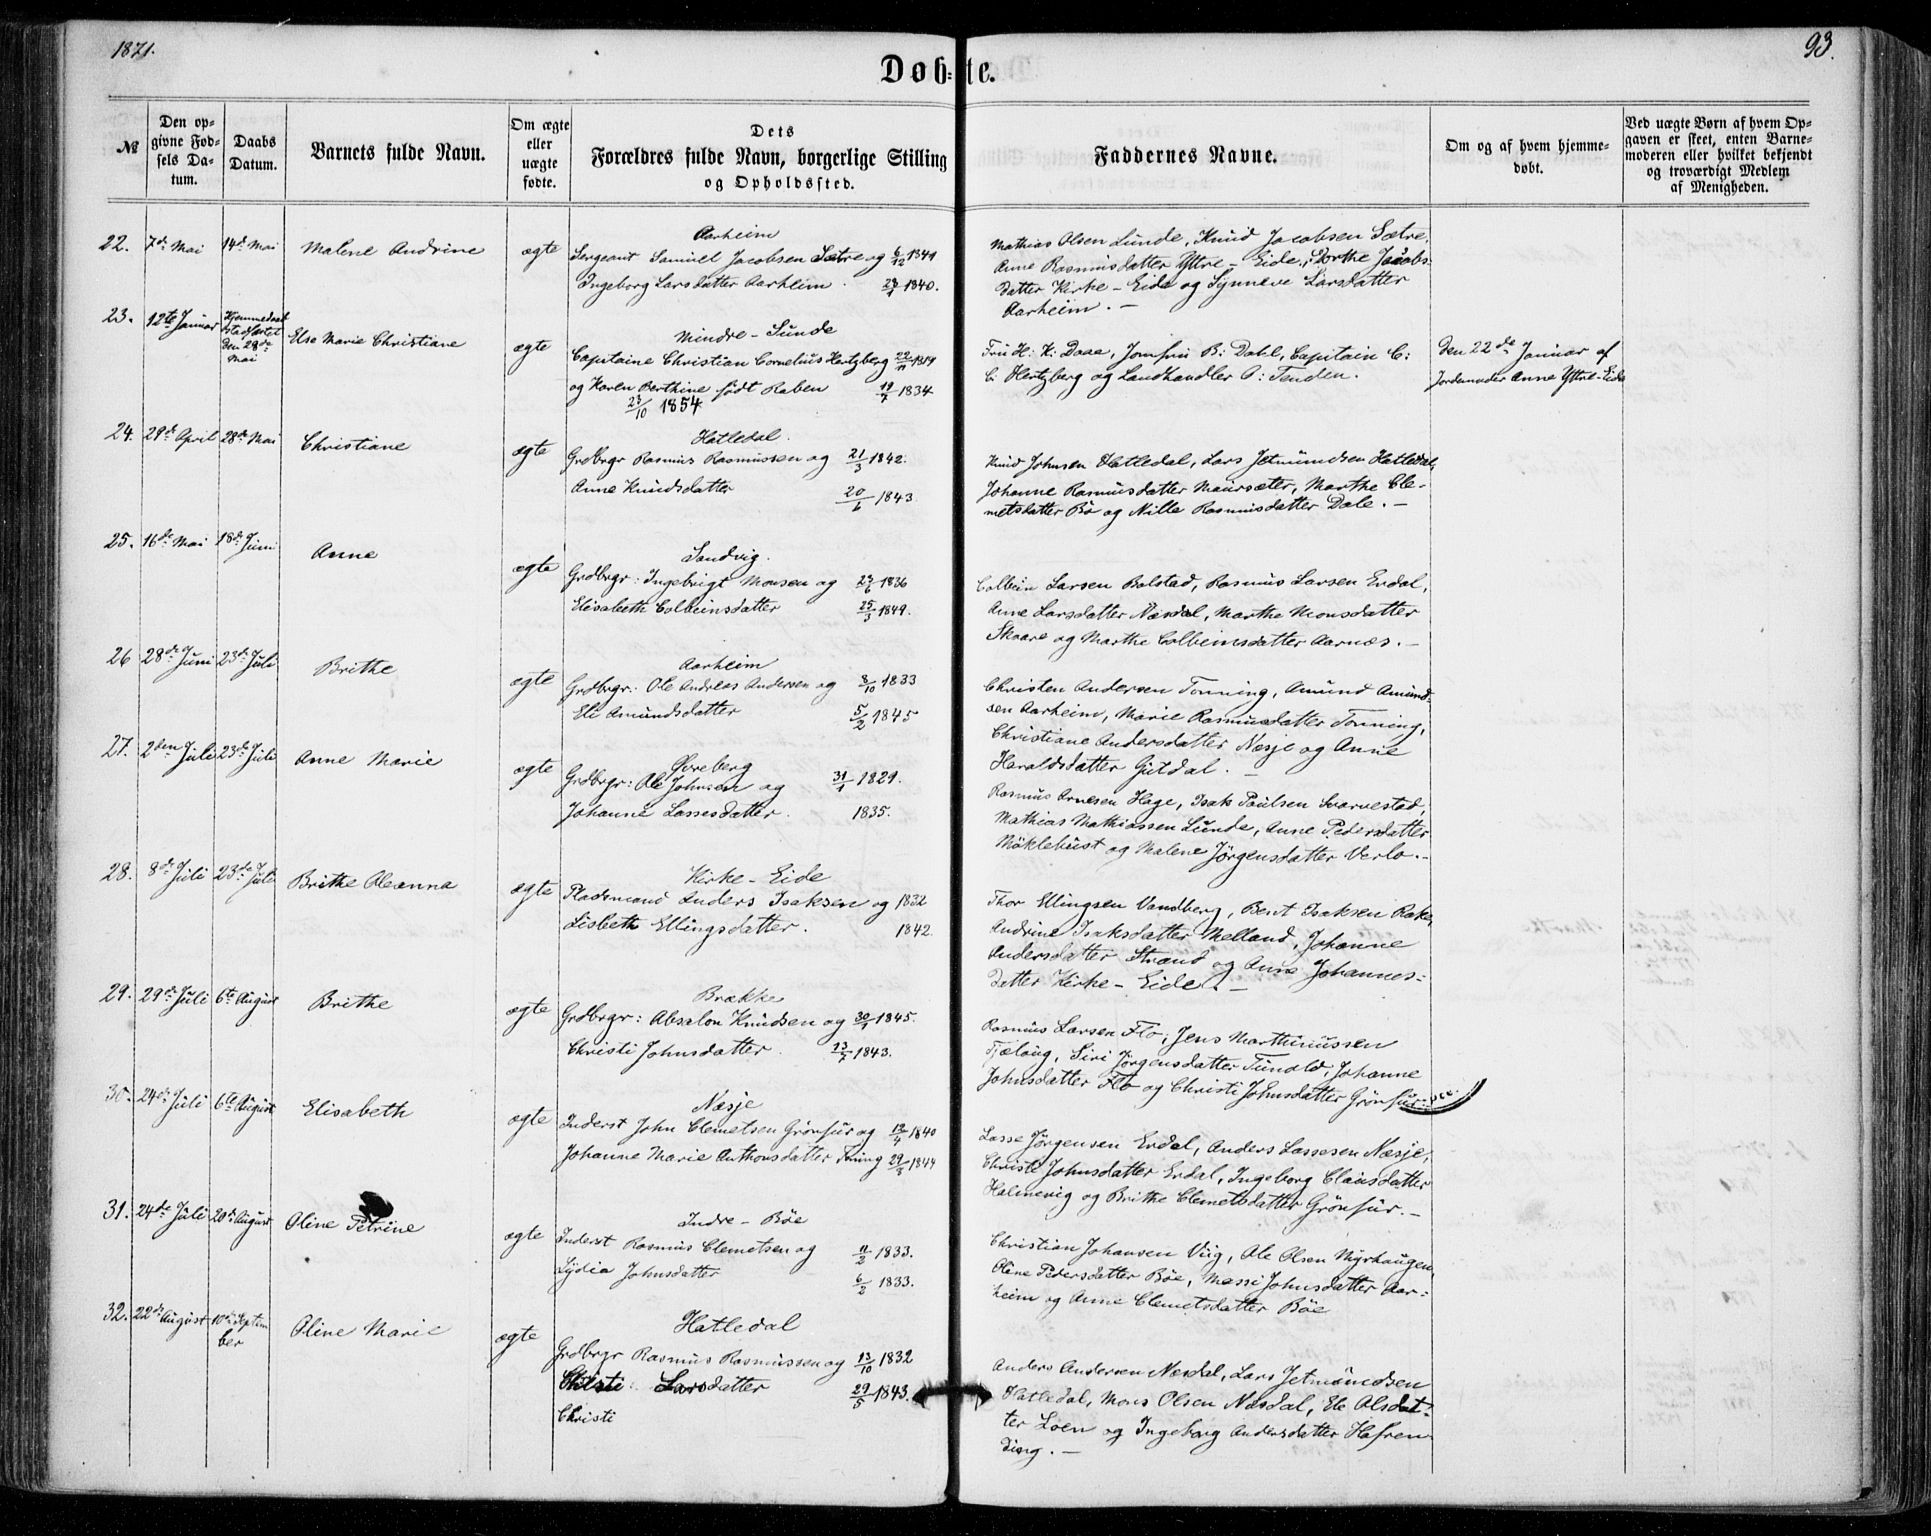 1871.
93.
Døb-te.
№
Den op-
givne Fød-
sels Da-
tum.
Daabs
Datum.
Barnets fulde Navn.
Om ægte
eller
uægte
fødte.
Dets
Forældres fulde Navn, borgerlige Stilling
og Opholdssted.
Faddernes Navne.
Om og af hvem hjemme-
døbt.
Ved uægte Børn af hvem Op-
gaven er skeet, enten Barne-
moderen eller hvilket bekjendt
og troværdigt Medlem
af Menigheden.
22. 7de Mai 14de Mai Malene Andrine ægte
Aarheim
Sergeant Samuel Jacobsen Sætre og 6/12 1841
Ingeborg Larsdatter Aarheim. 1840.
Mathias Olsen Lunde, Knud Jacobsen Sætre,
Anne Rasmusdatter Yttre-Eide, Dorthe Jacobs-
datter Kirke-Eide og Synneve Larsdatter
Aarheim. -
23. 12te Januar Hjemmedaab
stadfæstet
den 28de
Mai
Else Marie Christiane ægte
Mindre-Sunde
Capitaine Christian Cornelius Hertzberg 22/11 1819
og Karen Berthine født Raben 19/7 1834
23/10 1854
Fru H: K: Daae, Jomfru B: Dahl, Capitain C:
C: Hertzberg og Landhandler P: Tenden.
Den 22de Januar af
Jordemoder Anne Yttre-Eide
24. 29de April 28de Mai Christiane ægte
Hatledal.
Grdbrgr Rasmus Rasmussen og 21/3 1842.
Anne Knudsdatter 20/6 1843
Knud Johnsen Hatledal, Lars Jetmundsen Hatledal,
Johanne Rasmusdatter Maursæter, Marthe Cle-
metsdatter Bö og Nille Rasmusdatter Dale. -
25. 16de Mai 18de Juni Anne ægte
Sandvig.
Grdbrgr: Ingebrigt Monsen og 23/6 1836
Elisabeth Colbeinsdatter 25/3 1849.
Colbein Larsen Bolstad, Rasmus Larsen Erdal,
Anne Larsdatter Næsdal, Marthe Monsdatter
Skaare og Marthe Colbeinsdatter Aarnæs. -
26 28de Juni 23de Juli Brithe ægte
Aarheim
Grdbrgr: Ole Andreas Andersen og 8/10 1833
Eli Amundsdatter 5/2 1845
Christen Andersen Tonning, Amund Amund-
sen Aarheim, Marie Rasmusdatter Tonning,
Christiane Andersdatter Næsje og Anne
Haraldsdatter Gutdal. -
27. 2den Juli 23de Juli Anne Marie ægte
Övreberg
Grdbrgr: Ole Johnsen og 31/1 1829.
Johanne Lassesdatter. 1835.
Rasmus Arnesen Hage, Isak Paulsen Svarvestad,
Mathias Mathiassen Lunde, Anne Pedersdatter
Möklebust og Malene Jörgensdatter Verlo. -
28. 8de Juli 23de Juli Brithe Oleanna ægte
Kirke-Eide
Pladsmand Anders Isaksen og 1832
Lisbeth Ellingsdatter. 1842.
Thor Ellingsen Vandberg, Bent Isaksen Rake,
Andrine Isaksdatter Melland, Johanne
Andersdatter Strand og Anne Johannes-
datter Kirke-Eide. -
29. 29de Juli 6te August Brithe ægte
Brække
Grdbrgr: Absalon Knudsen og 1845.
Christi Johnsdatter. 13/7 1843.
Rasmus Larsen Flo, Jens Marthinussen
Tjælaug, Siri Jörgensdatter Tunold, Johanne
Johnsdatter Flo og Christi Johnsdatter Grönfur
30. 24de Juli 6te August Elisabeth ægte
Næsje
Inderst John Clemetsen Grönfur og 1840
Johanne Marie Anthonsdatter 1844
Lasse Jörgensen Erdal, Anders Lassesen Næsje,
Christi Johnsdatter Erdal, Ingeborg Clausdatter
Halnevig og Brithe Clemetsdatter Grönfur. -
31. 24de Juli 20de August Oline Petrine ægte
Indre-Böe
Inderst Rasmus Clemetsen og 11/2 1833.
Lydia Johnsdatter 6/2 1833.
Christian Johansen Viig, Ole Olsen Myrhaugen,
Oline Pedersdatter Böe, Massi Johnsdatter Aar-
heim og Anne Clemetsdatter Böe
32. 22de August 10de Septem
ber
Oline Marie ægte
Hatledal
Grdbrgr Rasmus Rasmussen og 13/10 1832
Larsdatter 29/5 1843.
Christi
Anders Andersen Næsdal, Lars Jetmundsen
Hatledal, Mons Olsen Næsdal, Ele Olsdat-
ter Loen og Ingeborg Andersdatter Hafren-
ding. -